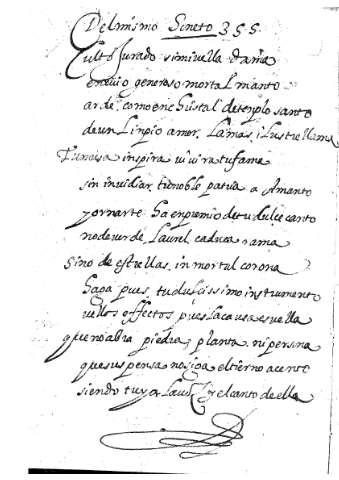 Del mismo Soneto 355.
Culto Jurado si mi vella dama
en cuio generoso mortal manto
arde, como en christal de templo santo
de un linpio amor, la mas ilustre llama
Tu musa inspira vivira tu fama
sin invidiar tu noble patria a Manto
y ornarte ha en premio de tu dulce canto
no de verde, laurel, caduca rama
sino de estrellas, inmortal corona
haga pues, tu dulcissimo instrumento
vellos effectos, pues la causa es vella
que no abra piedra, planta, ni persona
que suspensa no siga el tierno acento
siendo tuya la voz y el canto de ella